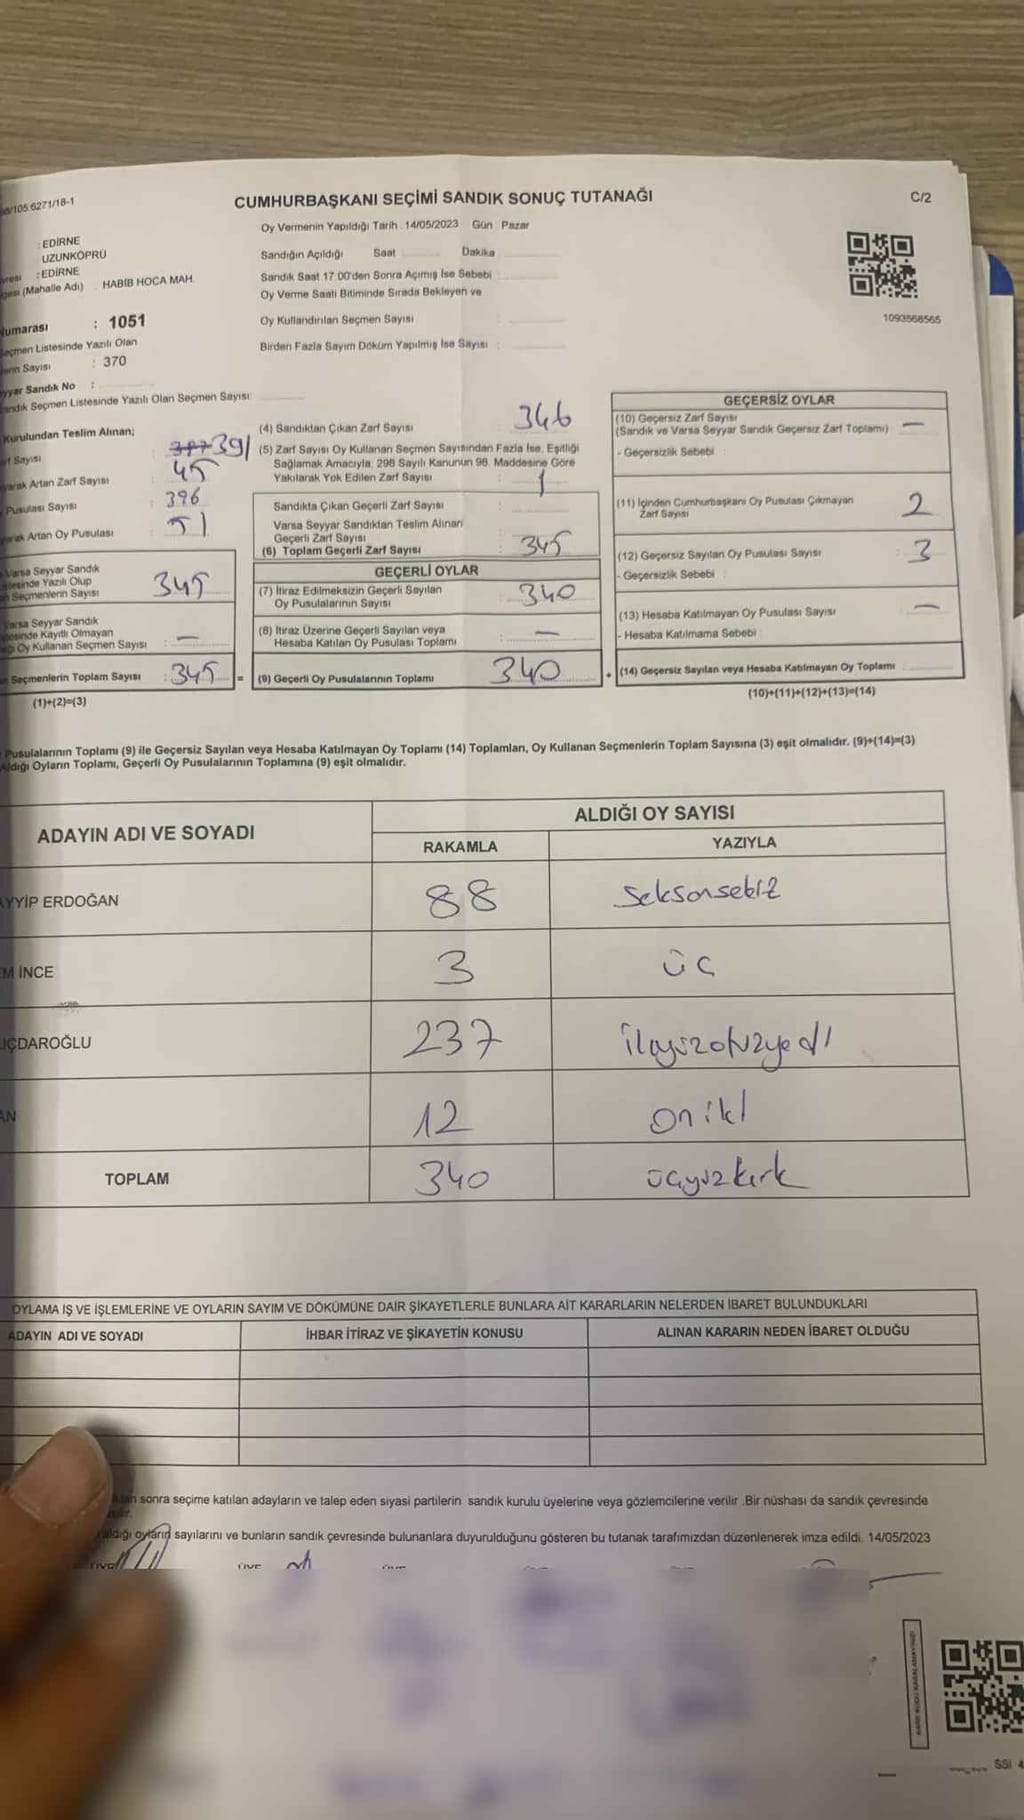 CUMHURBAŞKANI SEÇİMİ SANDIK SONUÇ TUTANAĞI
C/2
105.6271/18-1
Oy Vermenin Yapıldığı Tarih : 14/05/2023 Gün : Pazar
: EDİRNE
UZUNKÖPRÜ
: EDİRNE
(Mahalle Adı) : HABİB HOCA MAH.
Sandığın Açıldığı Saat Dakika
Sandık Saat 17.00'den Sonra Açımış İse Sebebi :
Oy Verme Saati Bitiminde Sırada Bekleyen ve
Oy Kullandırılan Seçmen Sayısı :
Birden Fazla Sayım Döküm Yapılmış İse Sayısı :
1093568565
: 1051
Listesinde Yazılı Olan
Sayısı : 370
Sandık No :
Seçmen Listesinde Yazılı Olan Seçmen Sayısı:
Kurulundan Teslim Alınan;
Sayısı 391
Artan Zarf Sayısı 45
Pusulası Sayısı 396
Artan Oy Pusulası 51
Varsa Seyyar Sandık
Yazılı Olup
Seçmenlerin Sayısı 345
Varsa Seyyar Sandık
Kayıtlı Olmayan
Oy Kullanan Seçmen Sayısı : —
Seçmenlerin Toplam Sayısı : 345 =
(1)+(2)=(3)
(4) Sandıktan Çıkan Zarf Sayısı : 346
(5) Zarf Sayısı Oy Kullanan Seçmen Sayısından Fazla İse, Eşitliği
Sağlamak Amacıyla, 298 Sayılı Kanunun 98. Maddesine Göre
Yakılarak Yok Edilen Zarf Sayısı : 1
Sandıkta Çıkan Geçerli Zarf Sayısı :
Varsa Seyyar Sandıktan Teslim Alınan
Geçerli Zarf Sayısı
(6) Toplam Geçerli Zarf Sayısı : 345
GEÇERLİ OYLAR
(7) İtiraz Edilmeksizin Geçerli Sayılan
Oy Pusulalarının Sayısı : 340
(8) İtiraz Üzerine Geçerli Sayılan veya
Hesaba Katılan Oy Pusulası Toplamı : —
(9) Geçerli Oy Pusulalarının Toplamı 340 +
GEÇERSİZ OYLAR
(10) Geçersiz Zarf Sayısı
(Sandık ve Varsa Seyyar Sandık Geçersiz Zarf Toplamı) : —
- Geçersizlik Sebebi :
(11) İçinden Cumhurbaşkanı Oy Pusulası Çıkmayan
Zarf Sayısı 2
(12) Geçersiz Sayılan Oy Pusulası Sayısı : 3
- Geçersizlik Sebebi :
(13) Hesaba Katılmayan Oy Pusulası Sayısı : —
- Hesaba Katılmama Sebebi :
(14) Geçersiz Sayılan veya Hesaba Katılmayan Oy Toplamı
(10)+(11)+(12)+(13)=(14)
Pusulalarının Toplamı (9) ile Geçersiz Sayılan veya Hesaba Katılmayan Oy Toplamı (14) Toplamları, Oy Kullanan Seçmenlerin Toplam Sayısına (3) eşit olmalıdır. (9)+(14)=(3)
Aldığı Oyların Toplamı, Geçerli Oy Pusulalarının Toplamına (9) eşit olmalıdır.
ADAYIN ADI VE SOYADI
ALDIĞI OY SAYISI
RAKAMLA YAZIYLA
AYYİP ERDOĞAN 88 Seksensekiz
İNCE 3 üç
DAROĞLU 237 ikiyüzotuzyedi
12 oniki
TOPLAM 340 üçyüzkırk
OYLAMA İŞ VE İŞLEMLERİNE VE OYLARIN SAYIM VE DÖKÜMÜNE DAİR ŞİKAYETLERLE BUNLARA AİT KARARLARIN NELERDEN İBARET BULUNDUKLARI
ADAYIN ADI VE SOYADI İHBAR İTİRAZ VE ŞİKAYETİN KONUSU ALINAN KARARIN NEDEN İBARET OLDUĞU
sonra seçime katılan adayların ve talep eden siyasi partilerin sandık kurulu üyelerine veya gözlemcilerine verilir. Bir nüshası da sandık çevresinde
aldığı oyların sayılarını ve bunların sandık çevresinde bulunanlara duyurulduğunu gösteren bu tutanak tarafımızdan düzenlenerek imza edildi. 14/05/2023